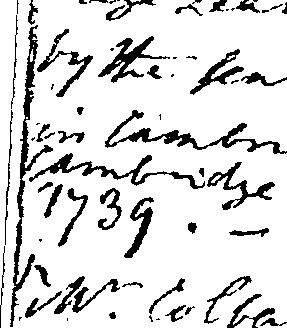 by the
in Cambr
Cambridge
1739. —
Mr. Colba